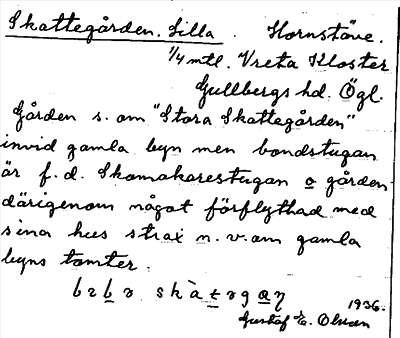 Skattegården. Lilla. Hornstöve.
1/4 mtl. Vreta Kloster
Gullbergs hd. Ögl.
Gården s. om "Stora Skattegården"
invid gamla byn men bondstugan
är f. d. Skomakarestugan o gården
därigenom något förflyttad med
sina hus strax n. v. om gamla
byns tomter.
1936.
Gustaf E. Olsson